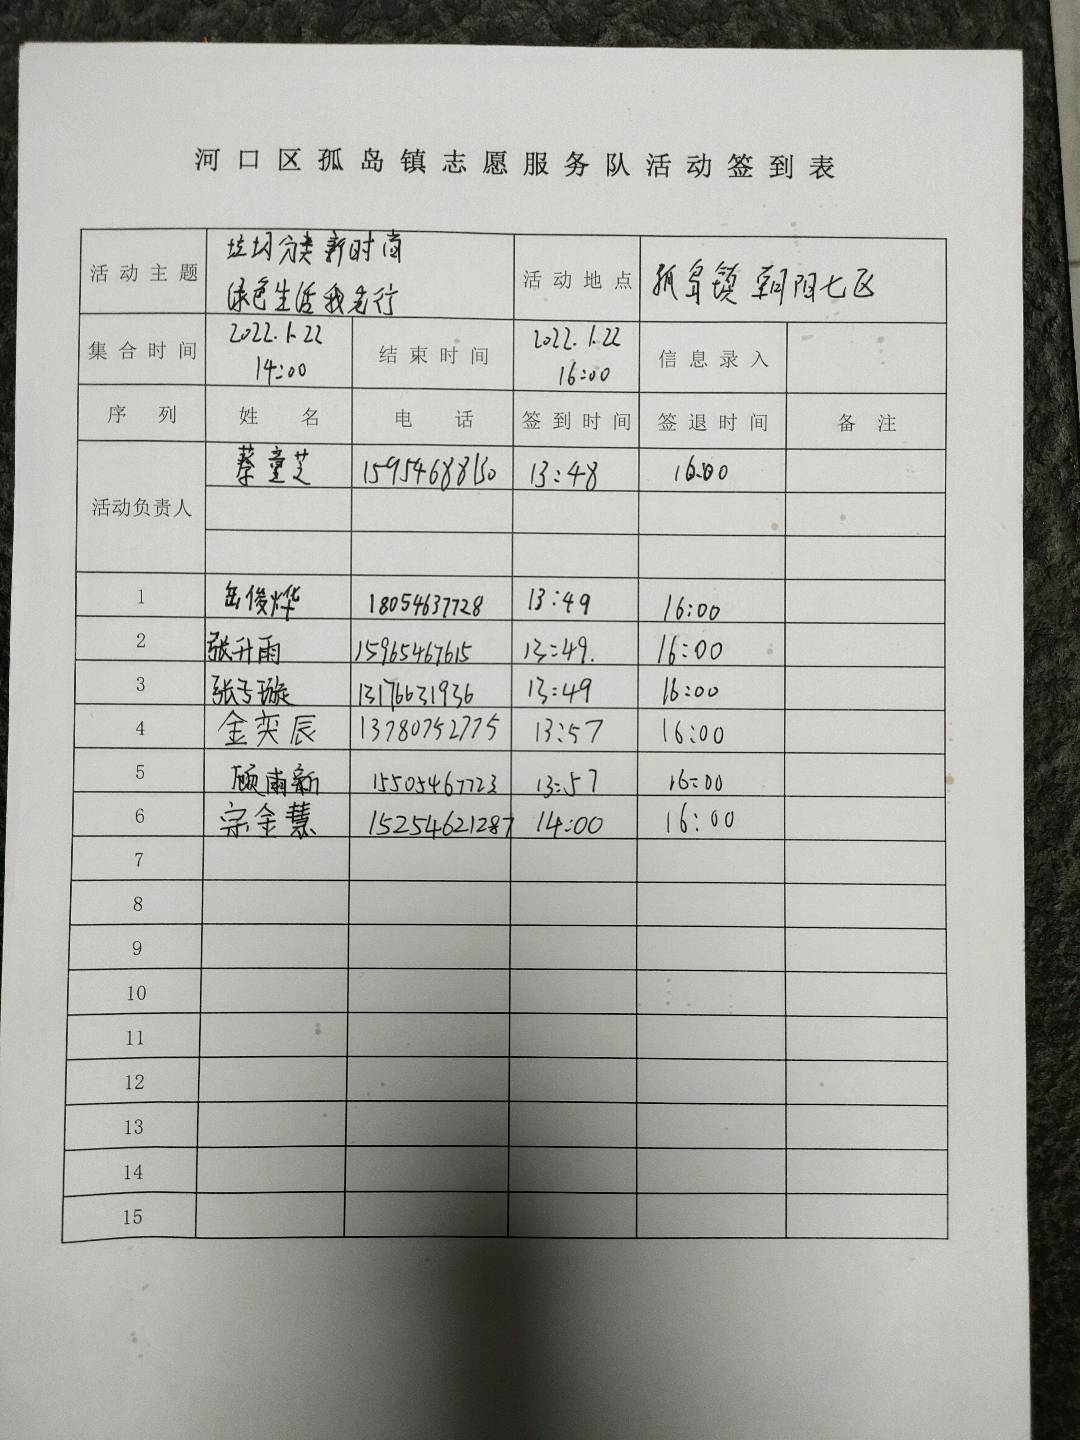 河口区孤岛镇志愿服务队活动签到表
活动主题 垃圾分类新时尚 活动地点 孤岛镇朝阳七区
绿色生活我先行
集合时间 2022.1.22 结束时间 2022.1.22 信息录入
14:00 16:00
序列 姓名 电话 签到时间 签退时间 备注
活动负责人 蔡童芝 13:48 16:00
1 岳俊烨 18054637728 13:49 16:00
2 张升雨 15965467615 13:49. 16:00
3 张子璇 13176631936 13:49 16:00
4 金奕辰 13780752775 13:57 16:00
5 顾甫新 15505467723 13:57 16:00
6 宗金慧 15254621287 14:00 16:00
7
8
9
10
11
12
13
14
15